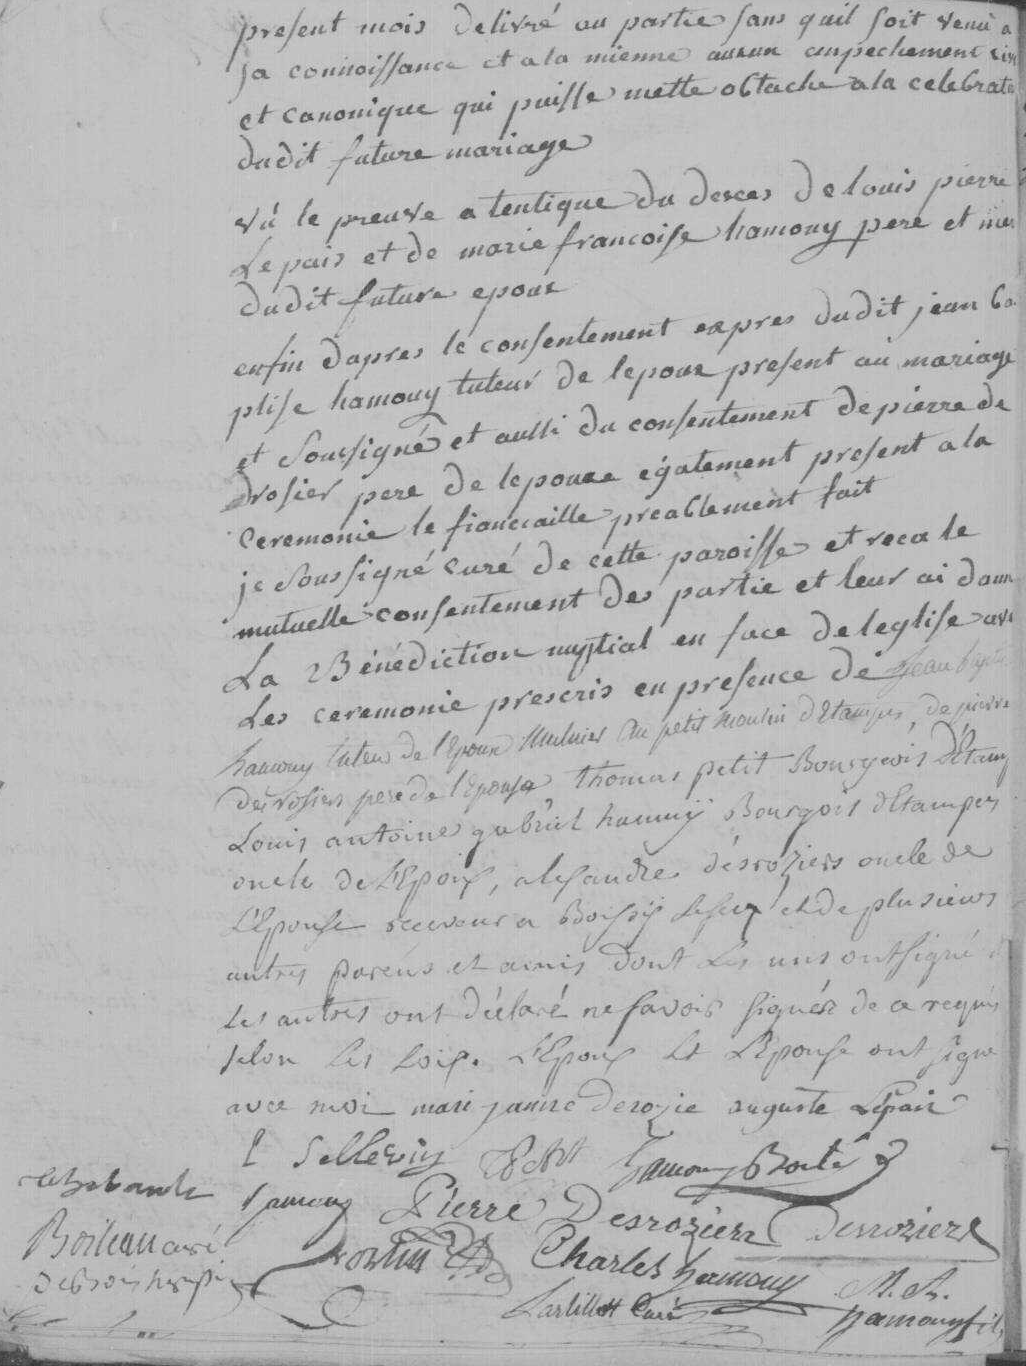 present mois delivré au partie sans quil soit venu a
sa connoissance et ala mienne aucun empechement
et canonique qui puisse mette obtacle ala celebrat
dudit future mariage
vu le preuve a tentique du deces de louis pierre
Lepais et de marie francoise hamouy pere et me
dudit future epoux
enfin dapres le consentement expres dudit jean ba
ptise hamouy tuteur de lepoux present au mariage
et soussigné et aussi du consentement de pierre de
drosier pere de lepouse également present a la
ceremonie le fiancaille preablement fait
je soussigné curé de cette paroisse et recu le
mutuelle consentement des partie et leur ai donn
La Bénédiction nuptial en face de leglise ave
Les ceremonie prescris en presence de jean bapti
hamouy tuteur de l'Epoux Meunier au petit moulin d'Etampes, de pierre
desrosiers pere de l'Epouse thomas petit Bourgeois D'Etamp
Louis antoine gabriel hamouy Bourgois d'Etampes
oncle de L'Epoux, alexandre désroziers oncle de
L'Epouse receveur a Boissy et de plusieurs
autres parens et amis dont Les uns ont signé
Les autres ont déclaré ne savoir signér de ce requis
selon les Loix. L'Epoux Et L'Epouse ont signé
avec moi mari jeanne derozie auguste Lepair
Petit hamouy
hamouy Pierre Desrozier Desroziere
Boileau curé
Charles hamouy M. A.
curé hamouy fils